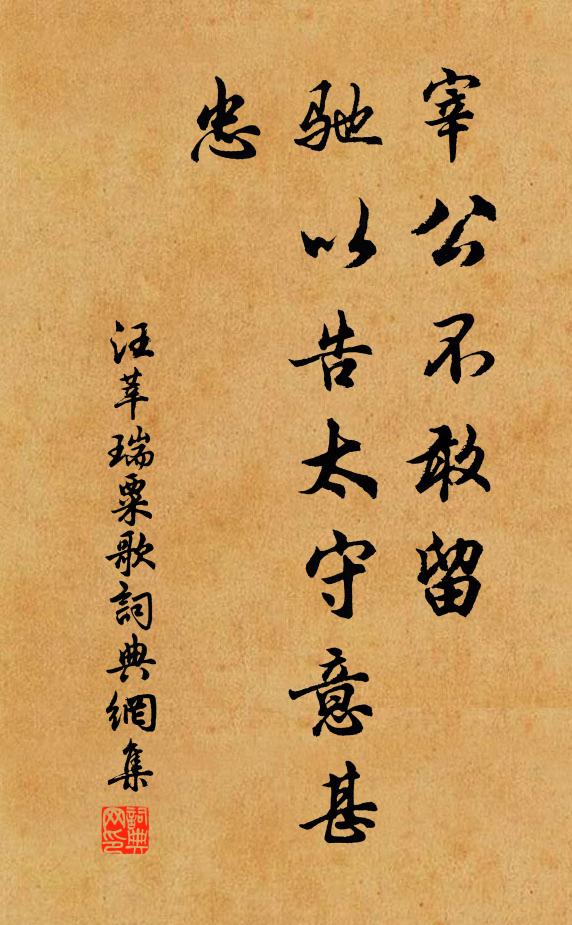 宰公不敢留
馳以告太守意甚
忠
汪莘瑞粟歌詞典網集
詞典网印